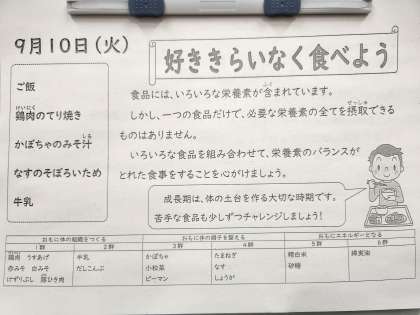 9月10日(火)
好ききらいなく食べよう
ご飯
鶏肉のてり焼き
かぼちゃのみそ汁
なすのそぼろいため
牛乳
食品には、いろいろな栄養素が含まれています。
しかし、一つの食品だけで、必要な栄養素の全てを摂取できる
ものはありません。
いろいろな食品を組み合わせて、栄養素のバランスが
とれた食事をすることを心がけましょう。
成長期は、体の土台を作る大切な時期です。
苦手な食品も少しずつチャレンジしましょう!
おもに体の組織をつくる おもに体の調子を整える おもにエネルギーとなる
1群 2群 3群 4群 5群 6群
鶏肉 うすあげ 牛乳 かぼちゃ たまねぎ 精白米
赤みそ 白みそ だしこんぶ 小松菜 なす 砂糖
けずりぶし 豚ひき肉 ピーマン しょうが